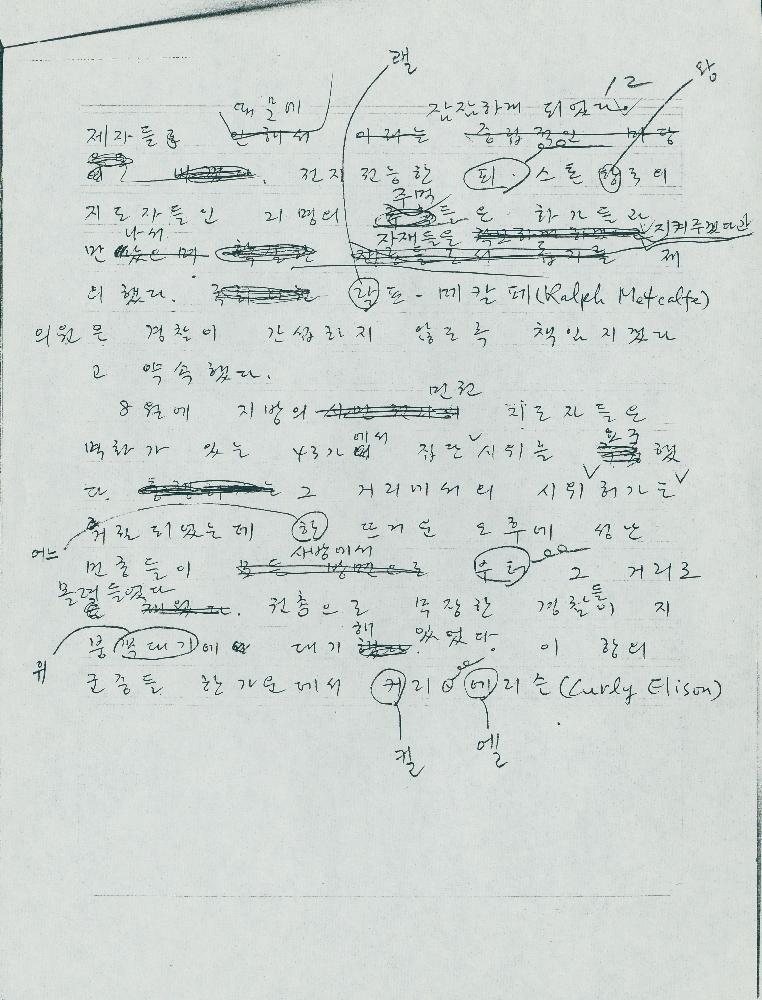 랠
12
왕
때문에
잠잠하게 되었다.
제자들로 인해서 이래는 중립적인 마당
. 전지전능한 피·스톤 왕국의
주먹
지도자들인 21명의 들은 화가들과
나서
자재들을
지켜주겠다고
만 제
의했다. 랄프-메칼페(Ralph Metcalfe)
의원은 경찰이 간섭하지 않도록 책임지겠다
고 약속했다.
민권
8월에 지방의 지도자들은
에서
요구
벽화가 있는 43가 집단 시위를 했
다. 그 거리에서의 시위 허가는
거절되었는데 한 뜨거운 오후에 성난
어느
사방에서
민중들이 모든 방면으로 부터 그 거리로
몰려들었다
. 권총으로 무장한 경찰들이 지
해
붕 꼭대기에 대기 있었다. 이 항의
위
군중들 한가운데서 커리 에리손(Curly Elison)
컬
엘